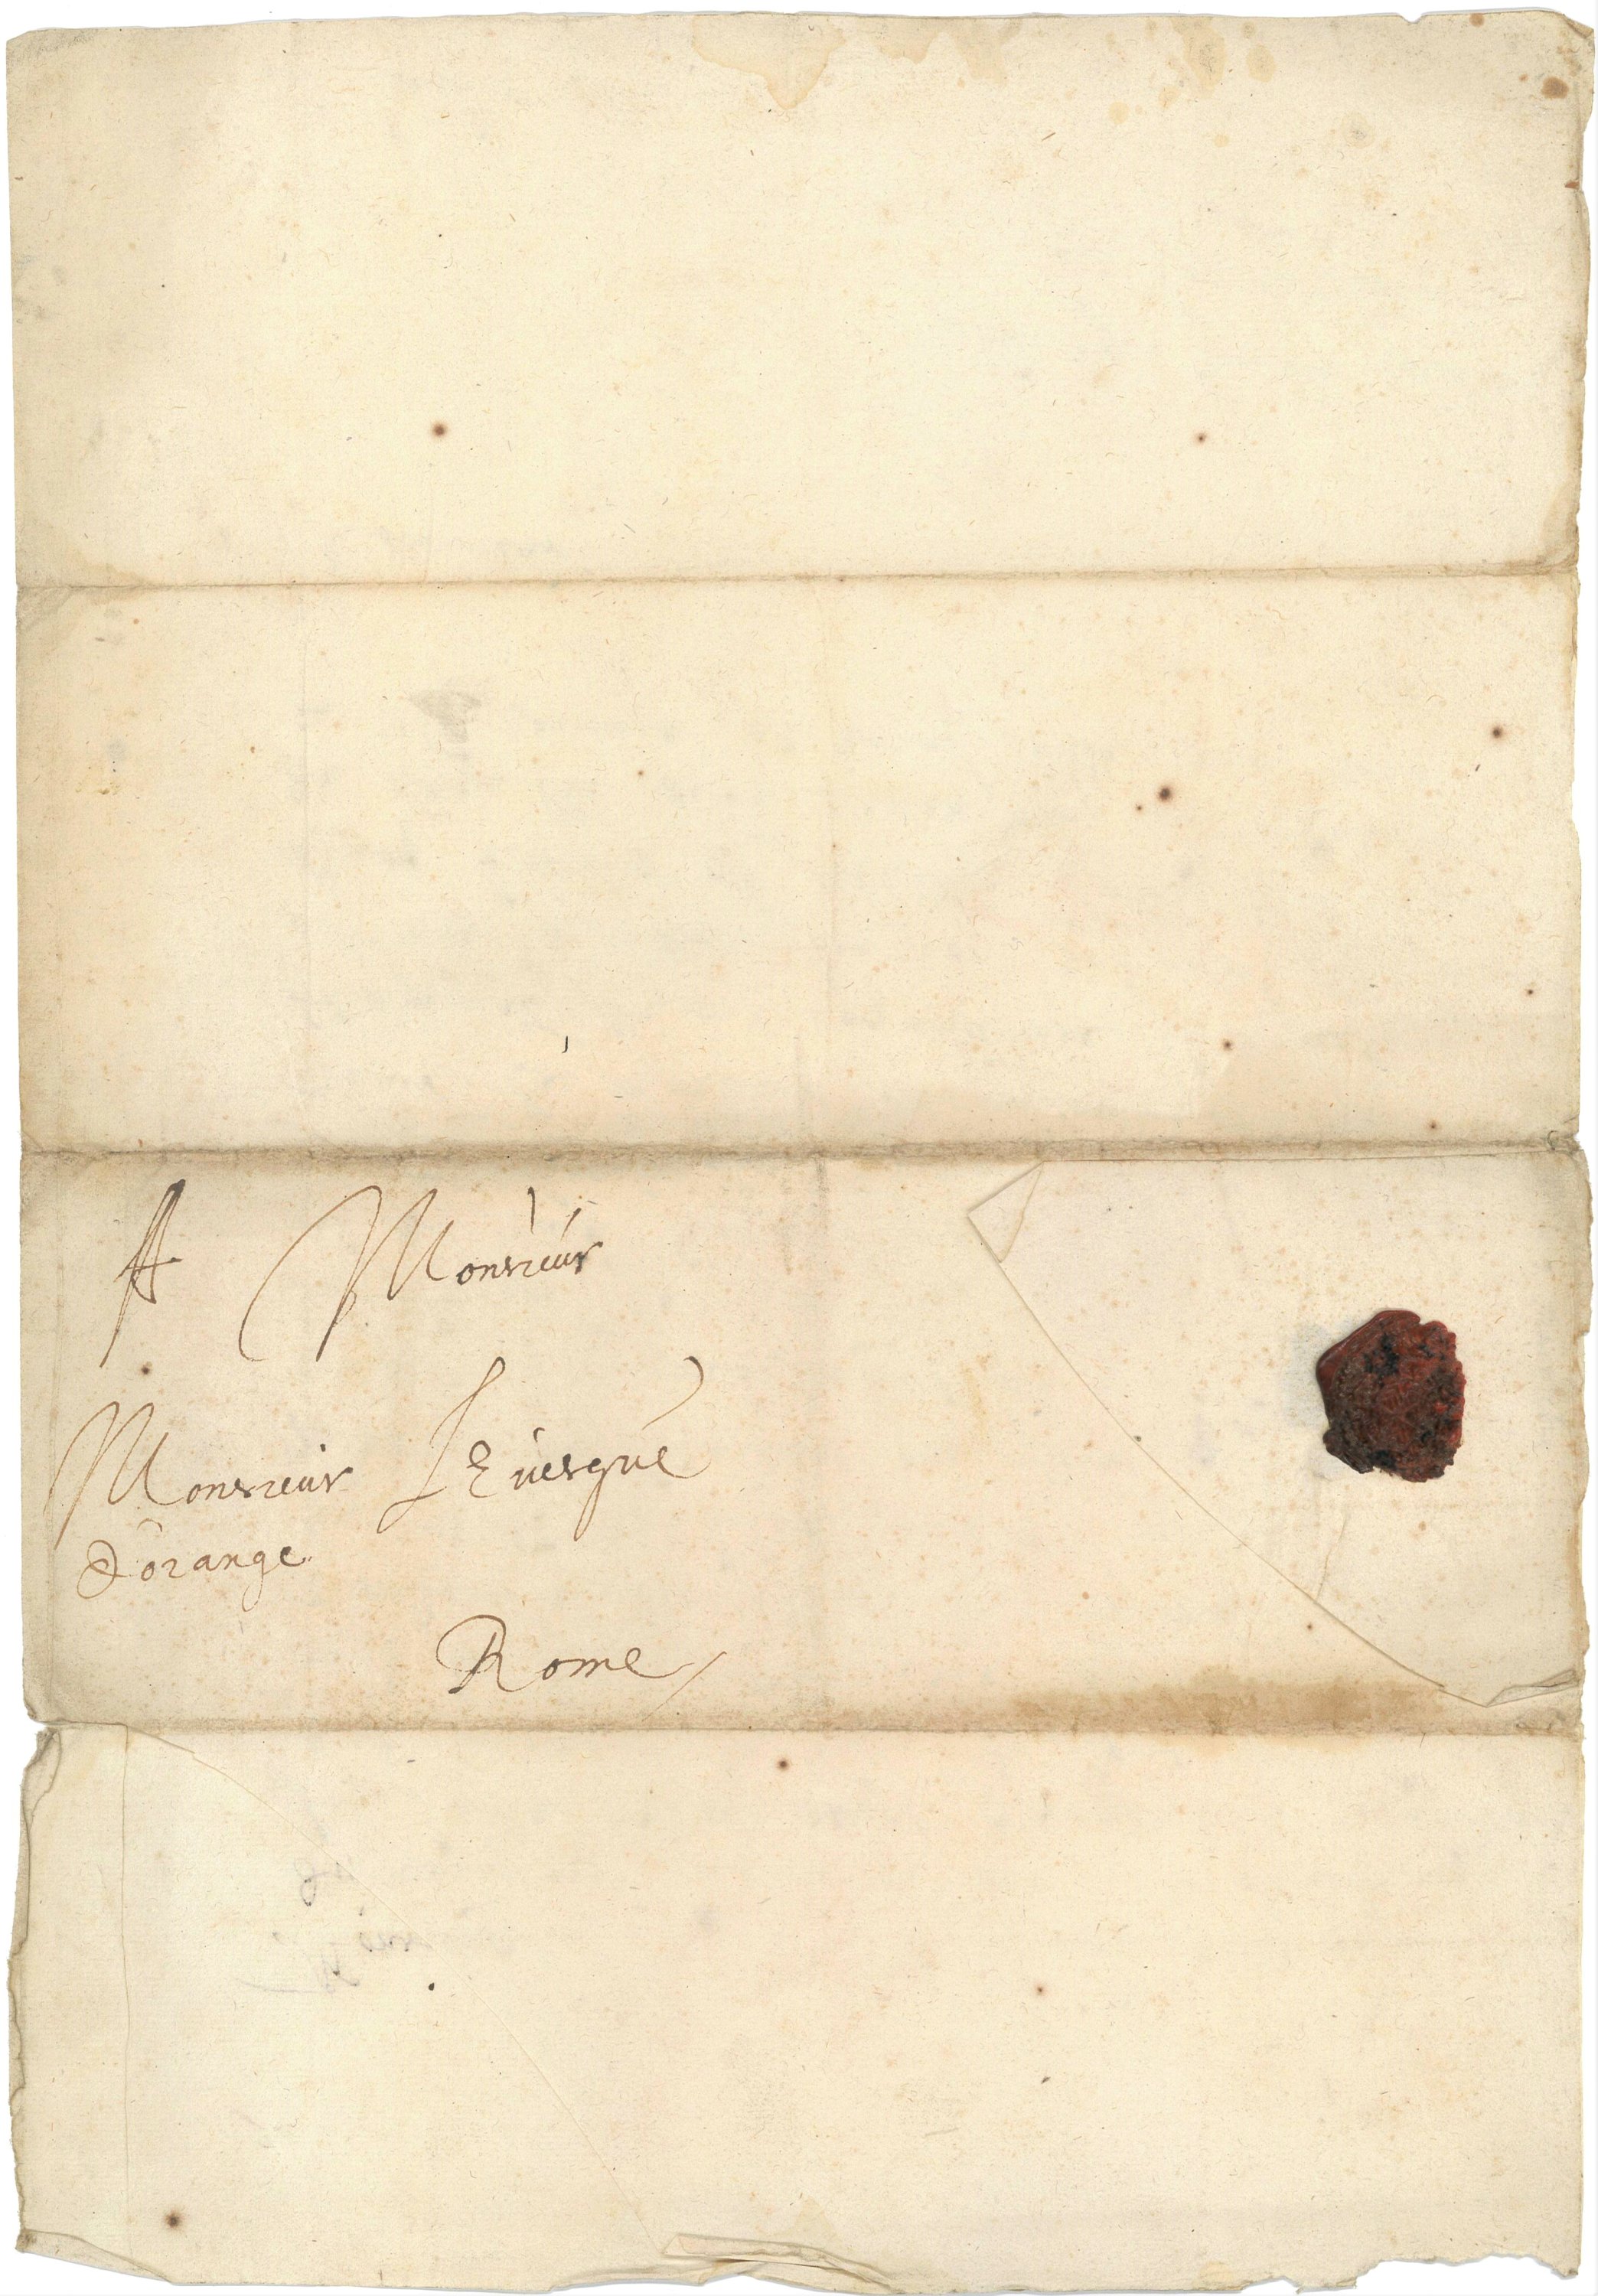 A Monsieur
Monsieur lEuesque
d'orange
Rome